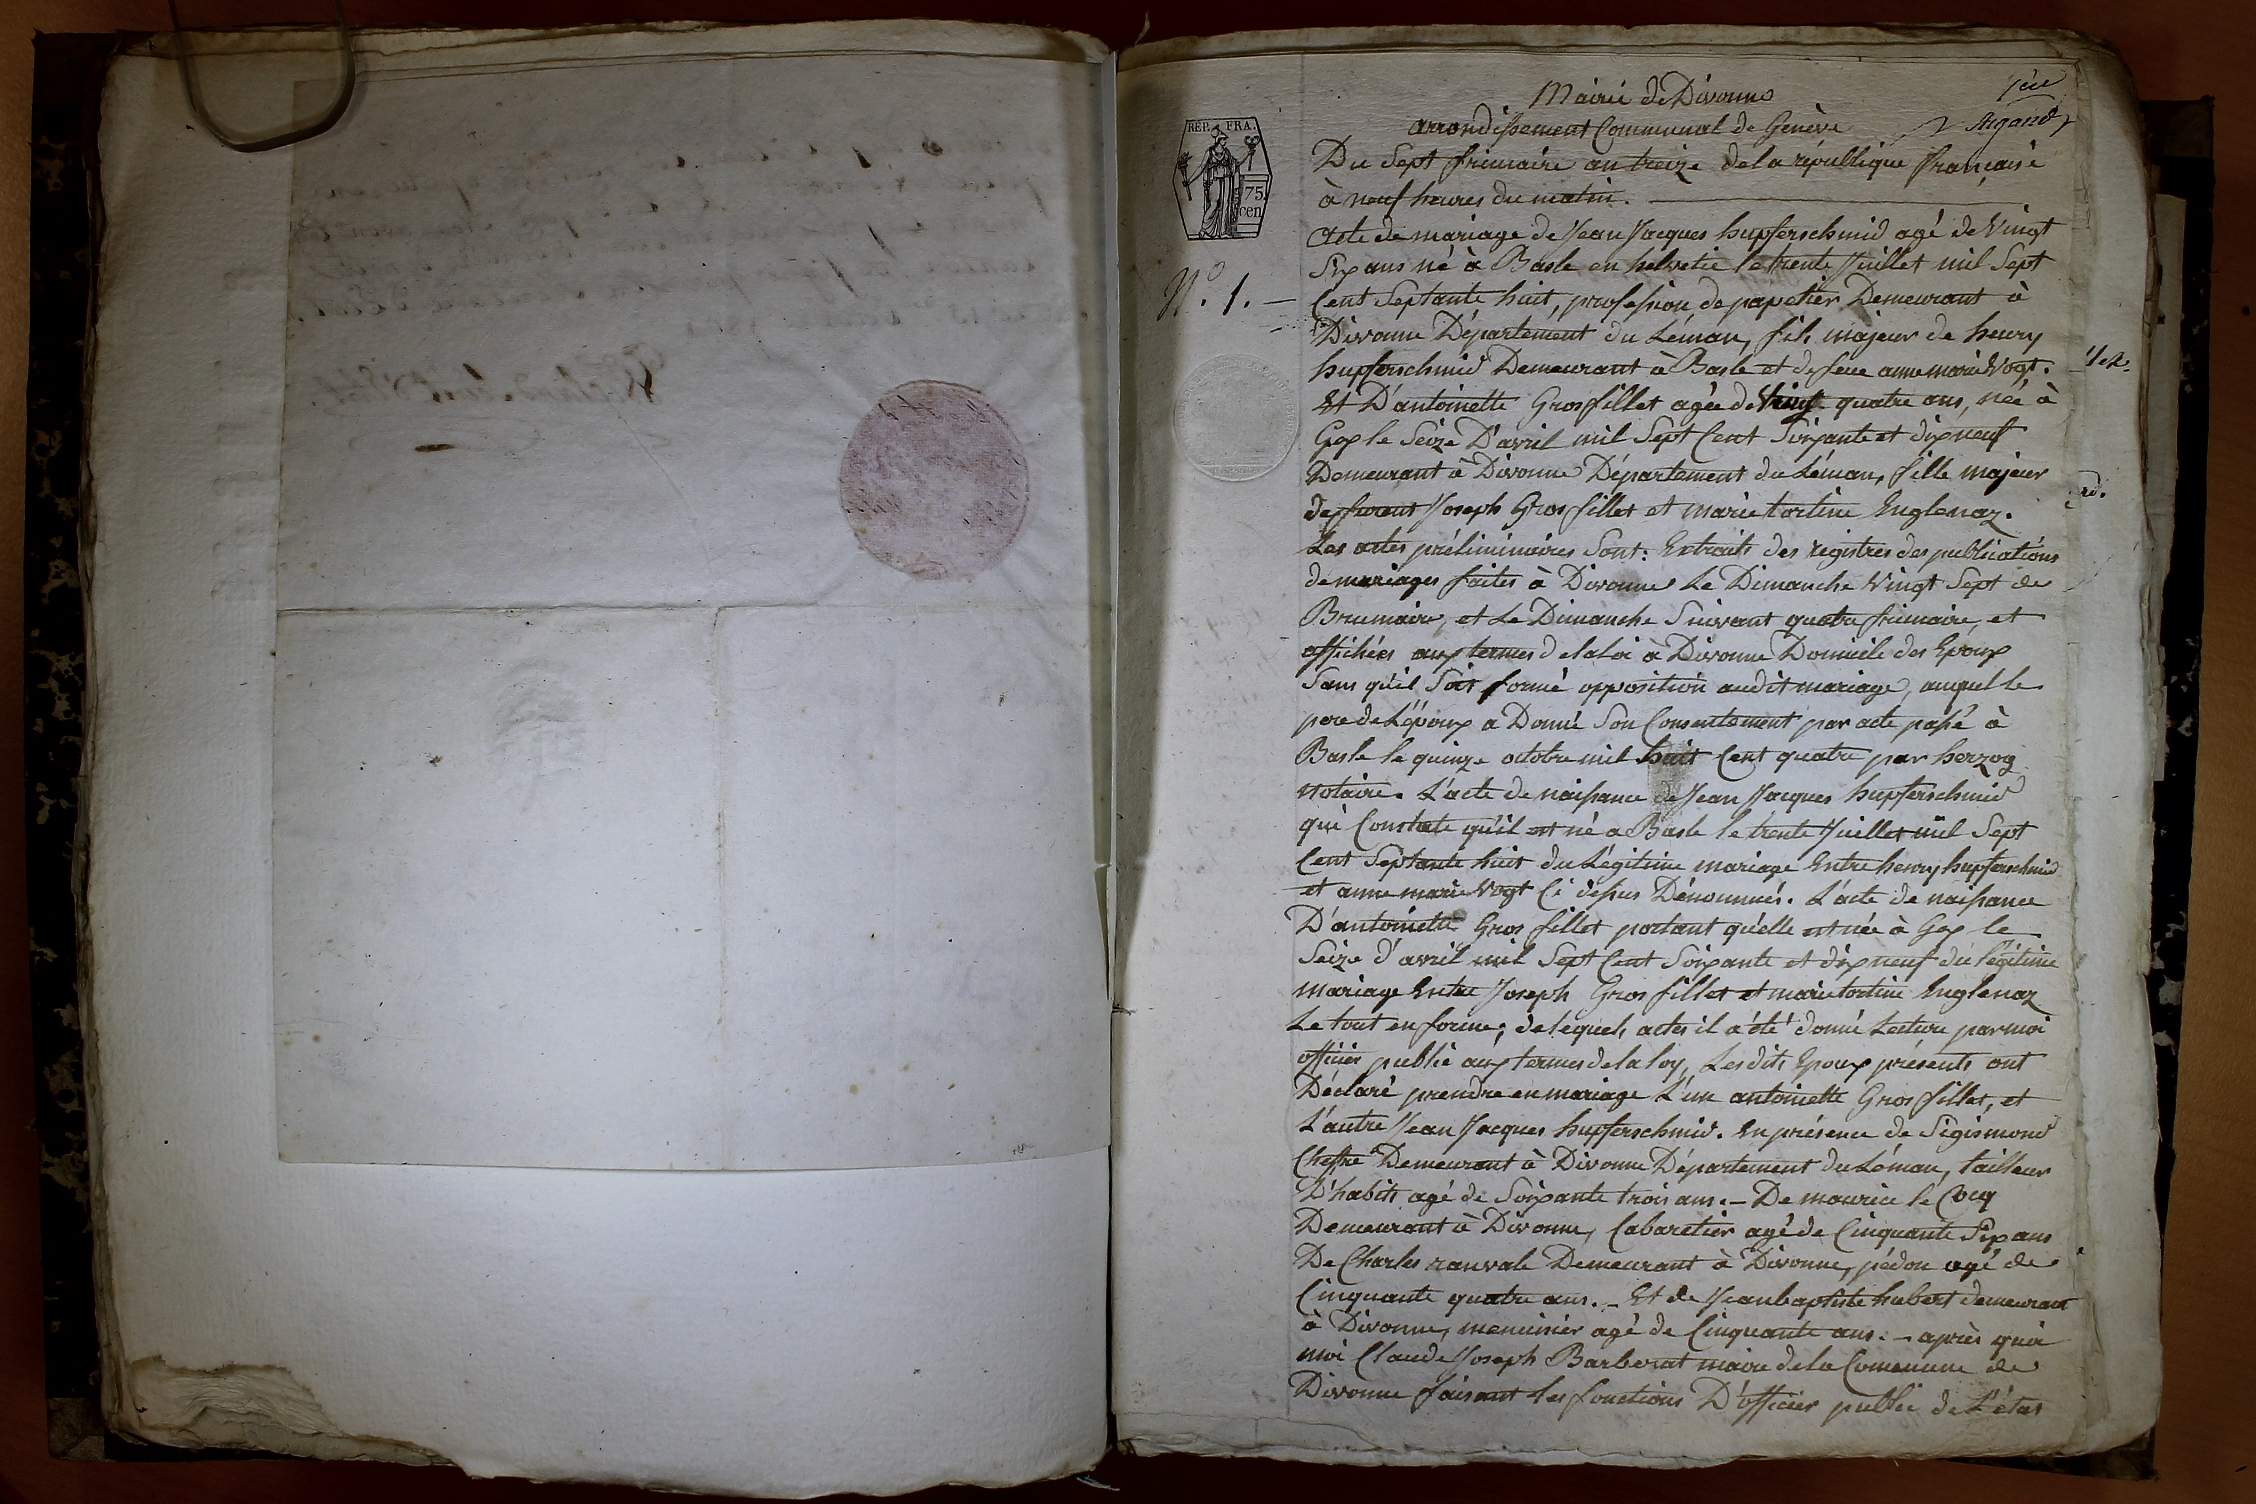 Mairie de Divonne
1ere
arrondissement Communal de Genève
Argand
REP. FRA.
75
cen
Du Sept frimaire an treize de la république française
à neuf heures du matin.
Acte de mariage de Jean Jacques hupferschmid agé de Vingt
Six ans né à Basle en helvetie le trente Juillet mil Sept
N.º 1.
Cent Septante huit, profession de papetier Demeurant à
Divonne Département du Léman, fils majeur de henry
hupferschmid Demeurant à Basle et de feue anne marie Vogt.
Et D'antoinette Grosfillet agée de Vingt quatre ans, née à
Gex le Seize D'avril mil Sept Cent Soixante et dix neuf
Demeurant à Divonne Département du Léman, fille majeur
de Joseph Grosfillet et marie tortine Englenaz.
Les actes préliminaires Sont: Extraits des registres des publications
de mariages faites à Divonne Le Dimanche Vingt Sept de
Brumaire, et Le Dimanche Suivant quatre frimaire, et
affichées aux termes de la loi à Divonne Domicile des Epoux
Sans qu'il Soit formé opposition audit mariage, auquel le
pere de L'époux a Donné Son Consentement par acte passé à
Basle le quinze octobre mil huit Cent quatre par herzog
notaire. L'acte de naissance de Jean Jacques hupferschmid
qui Constate qu'il est né a Basle le trente Juillet mil Sept
Cent Septante huit du Légitime mariage Entre henry hupferschmid
et anne marie Vogt Ci dessus Dénommés. L'acte de naissance
D'antoinette Gros fillet portant qu'elle est née à Gex le
Seize d'avril mil Sept Cent Soixante et dix neuf du légitime
mariage Entre Joseph Gros fillet et marie tortine Englenaz
Le tout en forme; de lequels actes il a été donné Lecture par moi
officier public aux termes de la loy, Les dits Epoux présents ont
Déclaré prendre en mariage L'un antoinette Gros fillet, et
L'autre Jean Jacques hupferschmid. En présence de Sigismond
Demeurant à Divonne Département du Léman, tailleur
D'habits agé de Soixante trois ans. - De maurice le Coq
Demeurant à Divonne, Cabaretier agé de Cinquante Six ans
De Charles ranvale Demeurant à Divonne, pédon agé de
Cinquante quatre ans. - Et de Jean baptiste hubert demeurant
à Divonne, menuisier agé de Cinquante ans. - après quoi
moi Claude Joseph Barberat maire de la Commune de
Divonne faisant les fonctions D'officier public de L'état